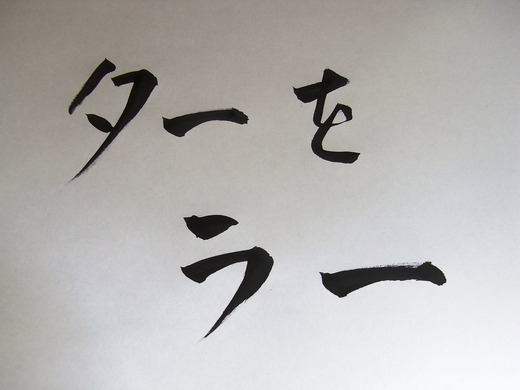 ターを
ラー